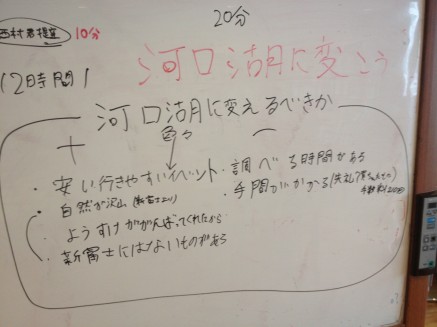 20分
西村君提案 10分
(2時間)
河口湖に変こう
河口湖に変えるべきか
+ 色々 −
・安い行きやすいイベント
・自然が沢山
ようすけががんばってくれたから
・新富士にはないものがある
・調べる時間がある
・手間がかかる